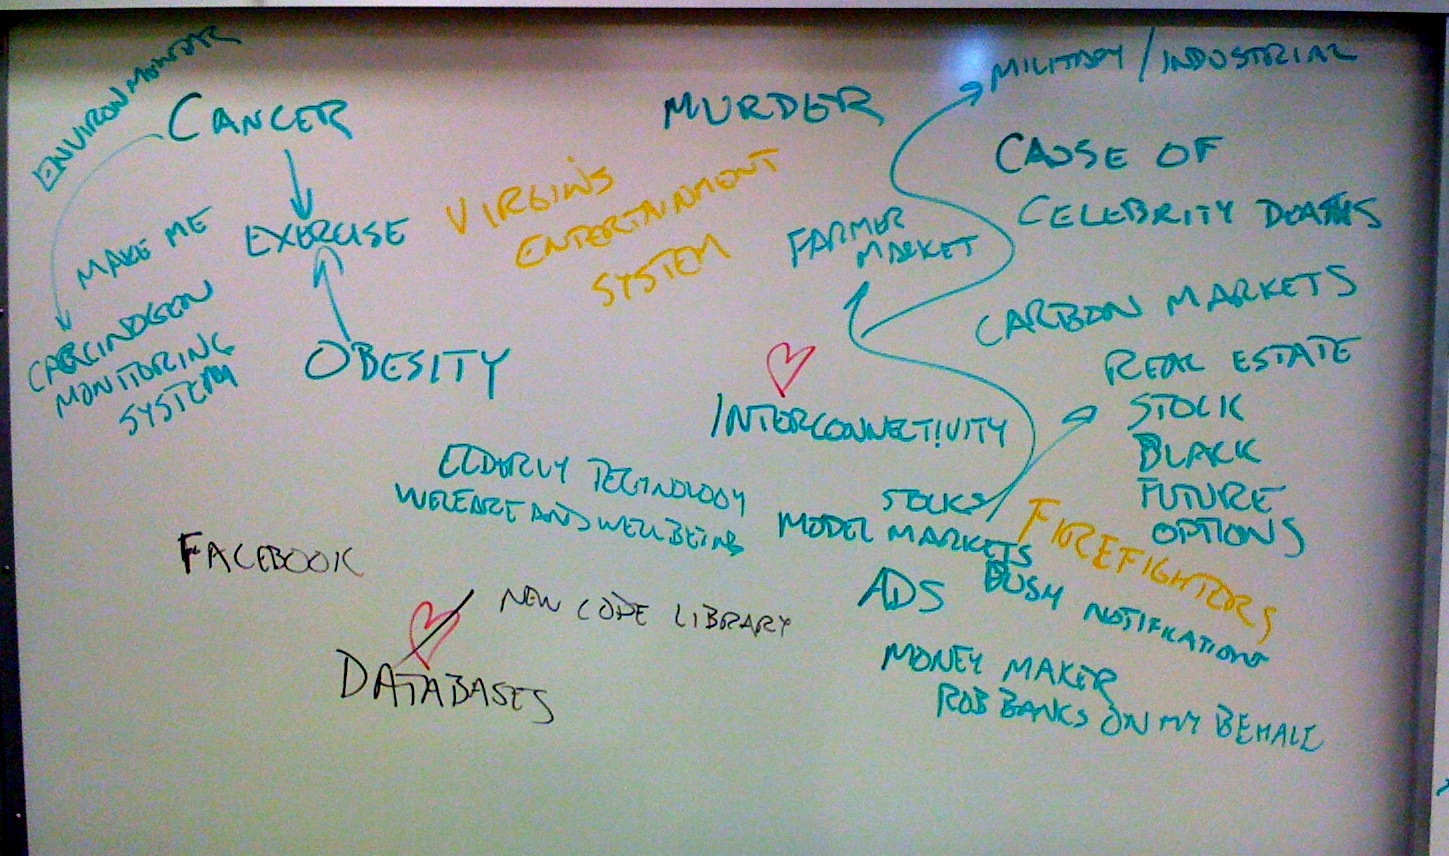 ENVIRONMONTAR
CANCER
MAKE ME
EXERCISE
CARCINOGEN
MONITORING
SYSTEM
OBESITY
MURDER
VIRGIN'S
ENTERTAINMONT
SYSTEM
MILITARY / INDUSTRIAL
CAUSE OF
CELEBRITY DEATHS
FARMER
MARKET
CARBON MARKETS
REAL ESTATE
STOCK
BLACK
FUTURE
OPTIONS
INTERCONNECTIVITY
ELDERLY TECHNOLOGY
WELFARE AND WELLBEING
STOCKS
MODEL MARKETS
FIREFIGHTORS
ADS
BUSY NOTIFICATIONS
MONEY MAKER
ROB BANKS ON MY BEHALF
FACEBOOK
NEW CODE LIBRARY
DATABASES